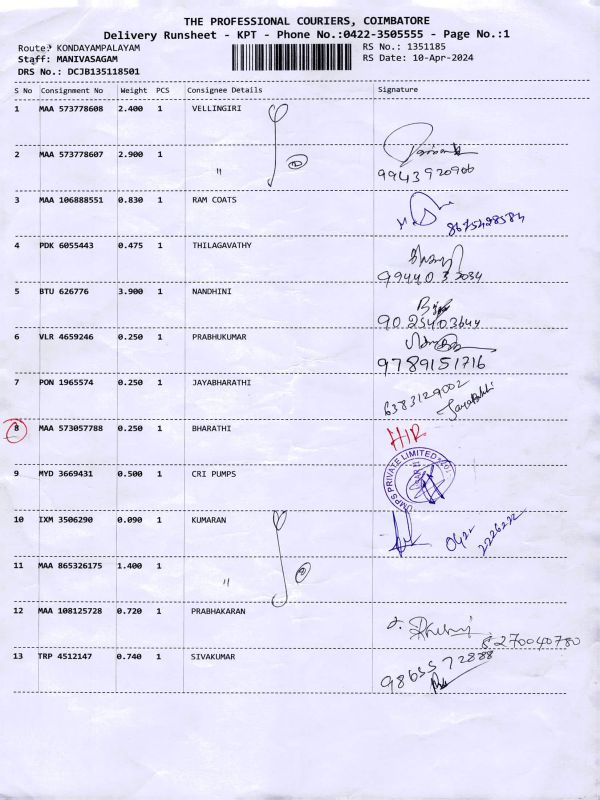 THE PROFESSIONAL COURIERS, COIMBATORE
Delivery Runsheet - KPT - Phone No.:0422-3505555 - Page No.:1
Route: KONDAYAMPALAYAM
RS No.: 1351185
Staff: MANIVASAGAM
RS Date: 10-Apr-2024
DRS No.: DCJB135118501
S No Consignment No Weight PCS Consignee Details Signature
1 MAA 573778608 2.400 1 VELLINGIRI
2 MAA 573778607 2.900 1 " 2
9943920906
3 MAA 106888551 0.830 1 RAM COATS
8675428584
4 PDK 6055443 0.475 1 THILAGAVATHY
9944033034
5 BTU 626776 3.900 1 NANDHINI
9025403644
6 VLR 4659246 0.250 1 PRABHUKUMAR
9789151716
7 PON 1965574 0.250 1 JAYABHARATHI
6383129002
8 MAA 573057788 0.250 1 BHARATHI
9 MYD 3669431 0.500 1 CRI PUMPS
UMPS PRIVATE LIMITED
10 IXM 3506290 0.090 1 KUMARAN
0422
2226222
11 MAA 865326175 1.400 1 " 2
12 MAA 108125728 0.720 1 PRABHAKARAN
8270040780
13 TRP 4512147 0.740 1 SIVAKUMAR
9865572888